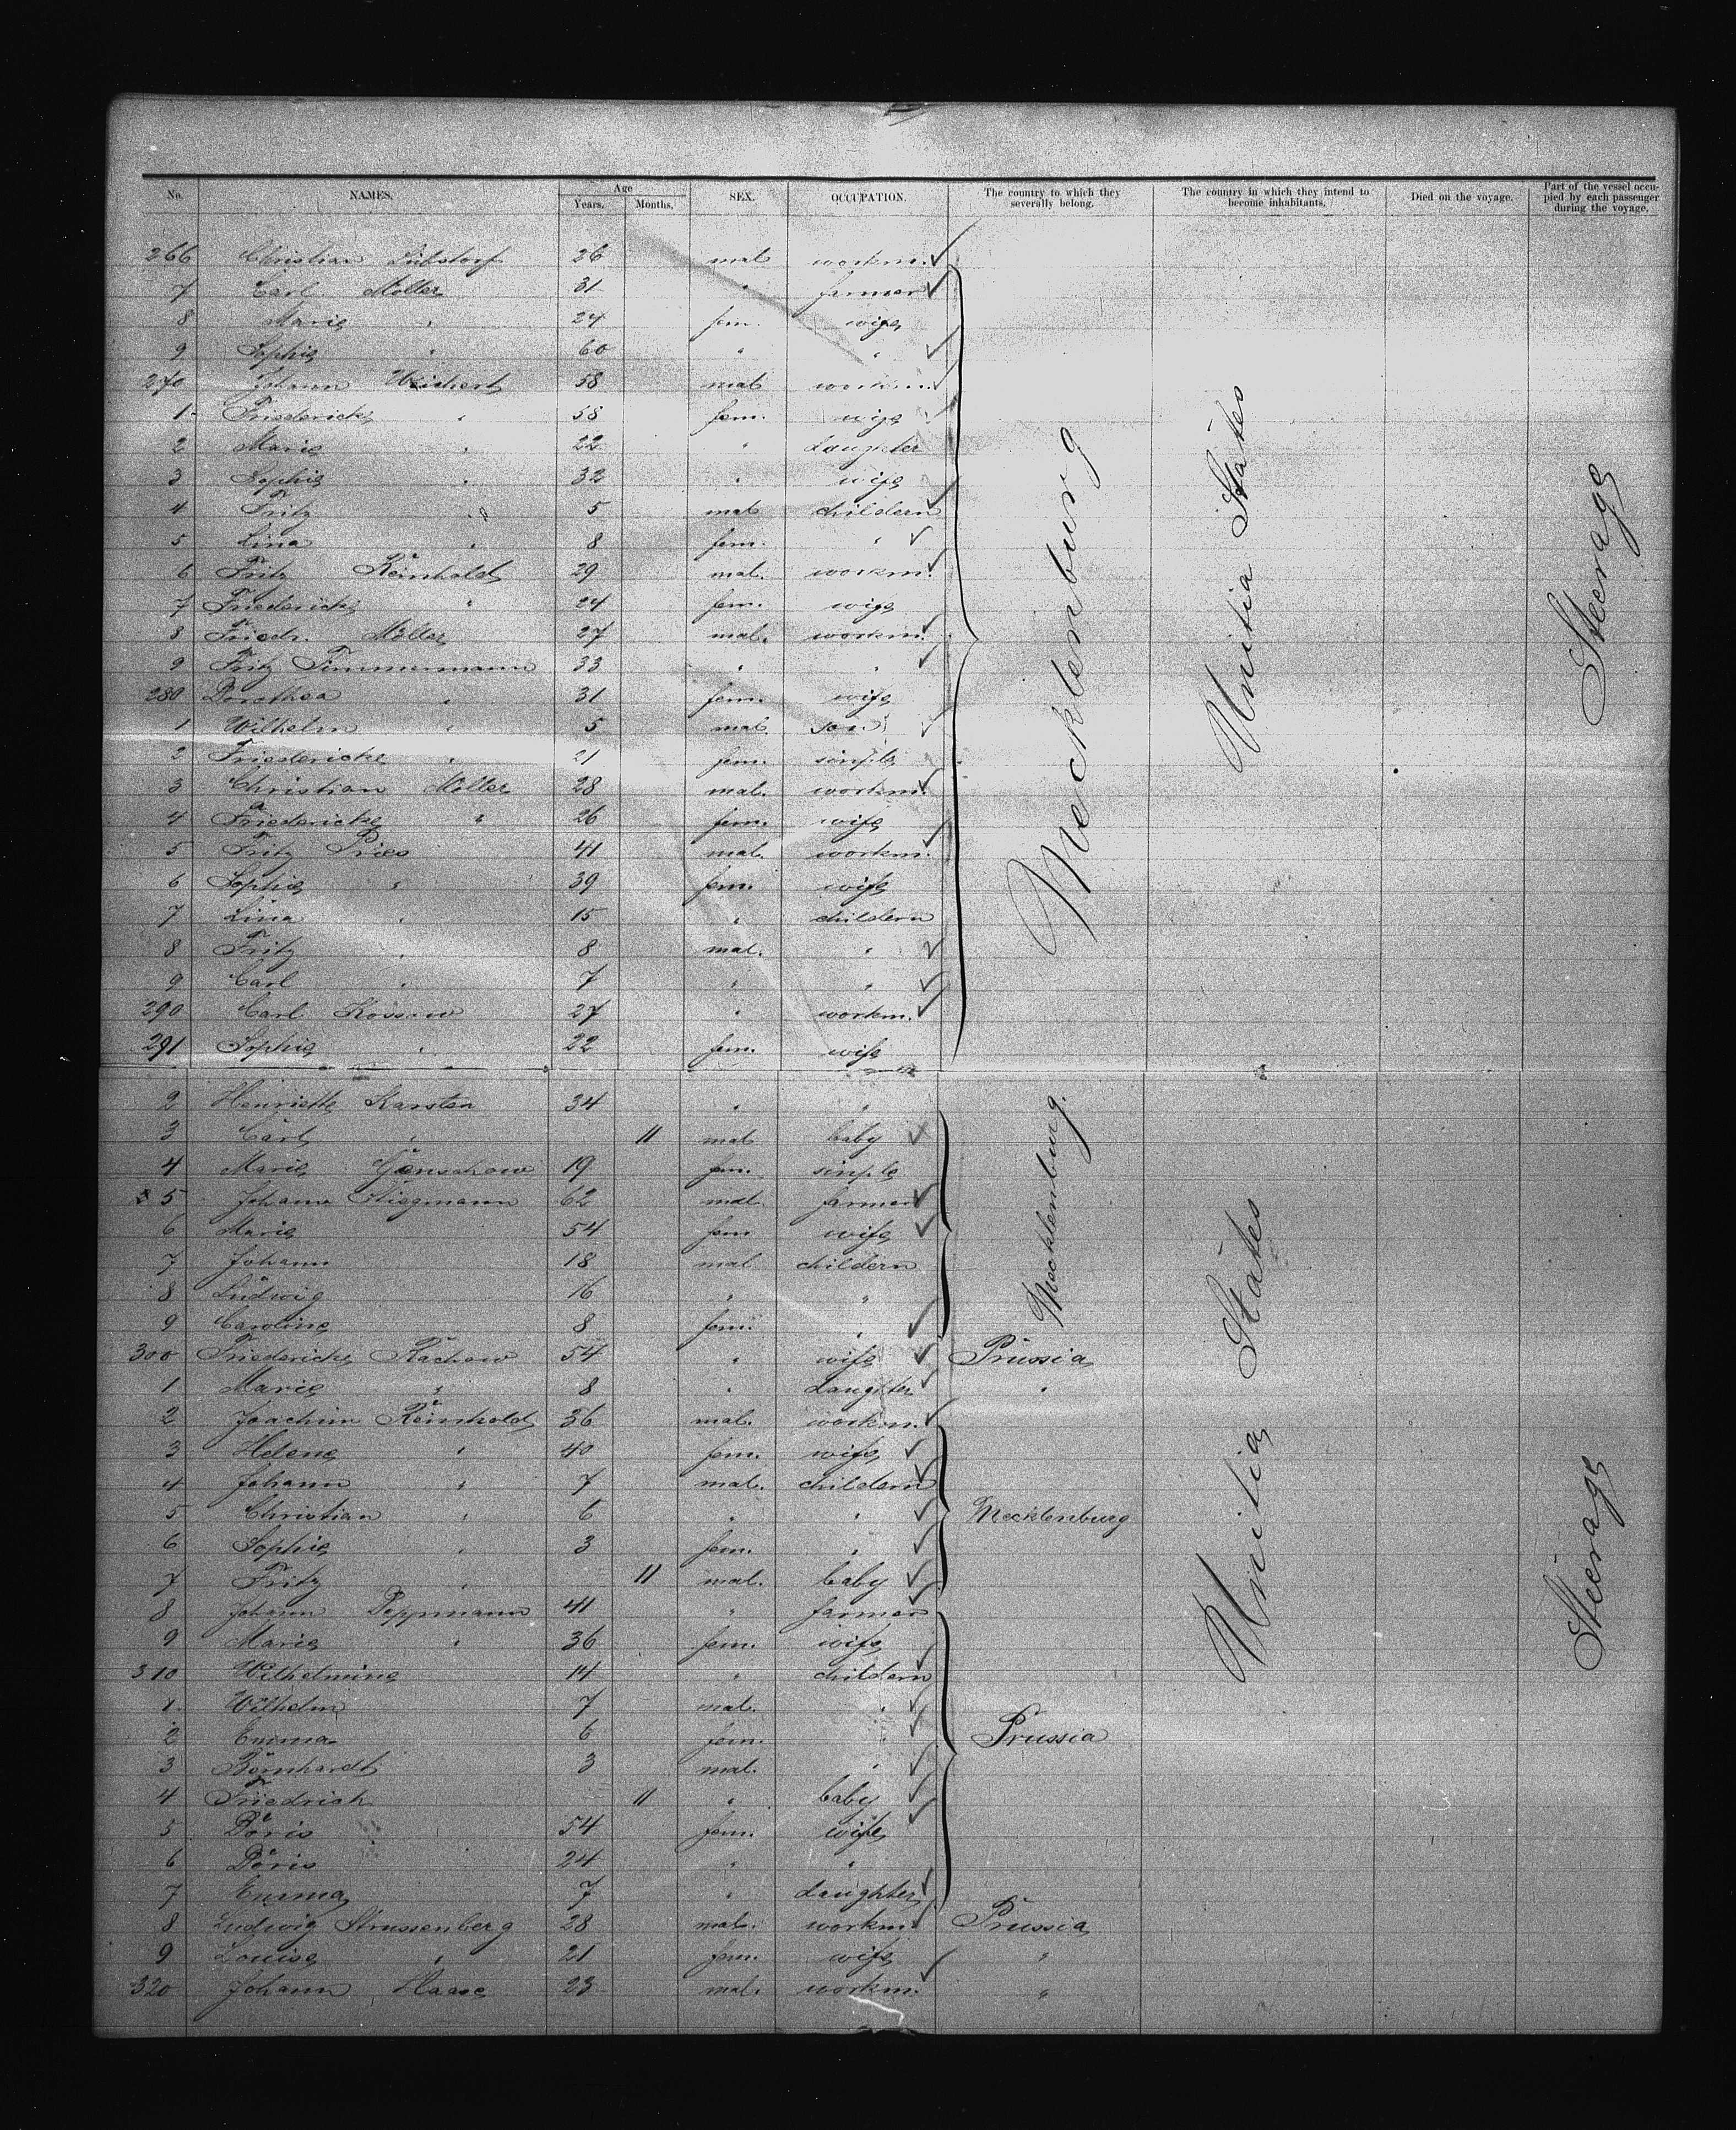 No. NAMES. Age Years. Months. SEX. OCCUPATION. The country to which they severally belong. The country in which they intend to become inhabitants. Died on the voyage. Part of the vessel occupied by each passenger during the voyage.
266 Christian 26 mal workm.
7 Carl Möller 31 " farmer
8 Marie " 24 fem. wife
9 Sophie " 60 " "
270 Johann Weichert 58 mal workm.
1 Friedericke " 58 fem. wife
2 Marie " 22 " daughter
3 Sophie " 32 " wife
4 Fritz " 5 mal childern
5 Lina " 8 fem. "
6 Fritz Reinhold 29 mal. workm.
7 Friedericke " 24 fem. wife
8 Friedr. Möller 27 mal. workm.
9 Fritz Timmermann 33 " "
280 Dorothea " 31 fem. wife
1 Wilhelm " 5 mal son
2 Friedericke " 21 fem. sinple
3 Christian Möller 28 mal. workm.
4 Friedericke " 26 fem. wife
5 Fritz Pries 41 mal. workm.
6 Sophie " 39 fem. wife
7 Lina " 15 " childern
8 Fritz " 8 mal. "
9 Carl " 7 " "
290 Carl Kossow 27 " workm.
291 Sophie " 22 fem. wife
Mecklenburg
Unitia States
Steerage
2 Henriette Karsten 34 " "
3 Carl " 11 mal baby
4 Marie 19 fem. sinple
5 Johann Stiegmann 62 mal farmer
6 Marie 54 fem wife
7 Johann 18 mal childern
8 Ludwig 16 " "
9 Caroline 8 fem. "
Mecklenburg.
300 Friedericke Rachow 54 " wife Prussia
1 Marie " 8 " daughter "
2 Joachim Reinhold 36 mal. workm.
3 Helene " 40 fem. wife
4 Johann " 7 mal. childern
5 Christian " 6 " " Mecklenburg
6 Sophie " 3 fem. "
7 Fritz " 11 mal. baby
8 Johann Peppmann 41 " farmer
9 Marie " 36 fem. wife
310 Wilhelmine 14 " childern
1 Wilhelm 7 mal. "
2 Emma 6 fem. " Prussia
3 Bernhardt 3 mal. "
4 Friedrich 11 " baby
5 Doris 54 fem. wife
6 Doris 24 " "
7 Emma 7 " daughter
8 Ludwig Strussenberg 28 mal. workm. Prussia
9 Louise " 21 fem. wife "
320 Johann Haase 23 mal. workm. "
Unitia States
Steerage